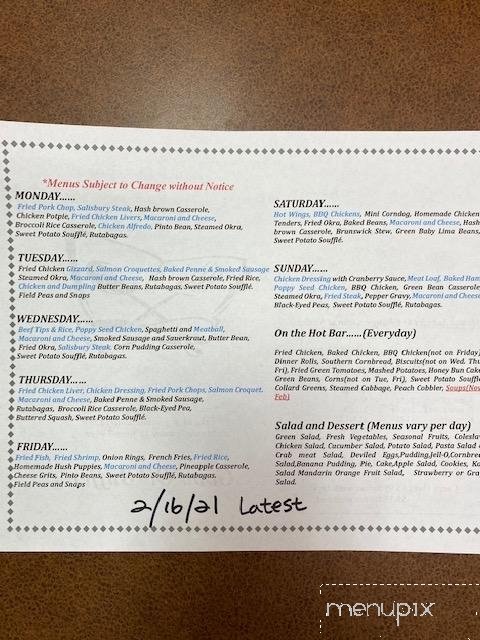 *Menus Subject to Change without Notice
MONDAY......
Fried Pork Chop, Salisbury Steak, Hash brown Casserole,
Chicken Potpie, Fried Chicken Livers, Macaroni and Cheese,
Broccoli Rice Casserole, Chicken Alfredo, Pinto Bean, Steamed Okra,
Sweet Potato Soufflé, Rutabagas.
TUESDAY......
Fried Chicken Gizzard, Salmon Croquettes, Baked Penne & Smoked Sausage
Steamed Okra, Macaroni and Cheese, Hash brown Casserole, Fried Rice,
Chicken and Dumpling Butter Beans, Rutabagas, Sweet Potato Soufflé.
Field Peas and Snaps
WEDNESDAY......
Beef Tips & Rice, Poppy Seed Chicken, Spaghetti and Meatball,
Macaroni and Cheese, Smoked Sausage and Sauerkraut, Butter Bean,
Fried Okra, Salisbury Steak. Corn Pudding Casserole,
Sweet Potato Soufflé, Rutabagas.
THURSDAY......
Fried Chicken Liver, Chicken Dressing, Fried Pork Chops, Salmon Croquet.
Macaroni and Cheese, Baked Penne & Smoked Sausage,
Rutabagas, Broccoli Rice Casserole, Black-Eyed Pea,
Buttered Squash, Sweet Potato Soufflé.
FRIDAY......
Fried Fish, Fried Shrimp, Onion Rings, French Fries, Fried Rice,
Homemade Hush Puppies, Macaroni and Cheese, Pineapple Casserole,
Cheese Grits, Pinto Beans, Sweet Potato Soufflé, Rutabagas.
Field Peas and Snaps
SATURDAY......
Hot Wings, BBQ Chickens, Mini Corndog, Homemade Chicken
Tenders, Fried Okra, Baked Beans, Macaroni and Cheese, Hash
brown Casserole, Brunswick Stew, Green Baby Lima Beans,
Sweet Potato Soufflé.
SUNDAY......
Chicken Dressing with Cranberry Sauce, Meat Loaf, Baked Ham
Poppy Seed Chicken, BBQ Chicken, Green Bean Casserole
Steamed Okra, Fried Steak, Pepper Gravy, Macaroni and Cheese
Black-Eyed Peas, Sweet Potato Soufflé, Rutabagas.
On the Hot Bar......(Everyday)
Fried Chicken, Baked Chicken, BBQ Chicken(not on Friday)
Dinner Rolls, Southern Cornbread, Biscuits(not on Wed. Thu
Fri), Fried Green Tomatoes, Mashed Potatoes, Honey Bun Cake
Green Beans, Corns(not on Tue, Fri), Sweet Potato Souffl
Collard Greens, Steamed Cabbage, Peach Cobbler, Soups(Nov
Feb)
Salad and Dessert (Menus vary per day)
Green Salad, Fresh Vegetables, Seasonal Fruits, Coleslaw
Chicken Salad, Cucumber Salad, Potato Salad, Pasta Salad
Crab meat Salad, Deviled Eggs,Pudding,Jell-O,Cornbre
Salad,Banana Pudding, Pie, Cake,Apple Salad, Cookies, Ka
Salad Mandarin Orange Fruit Salad, Strawberry or Gra
Salad.
2/16/21 Latest
menupix